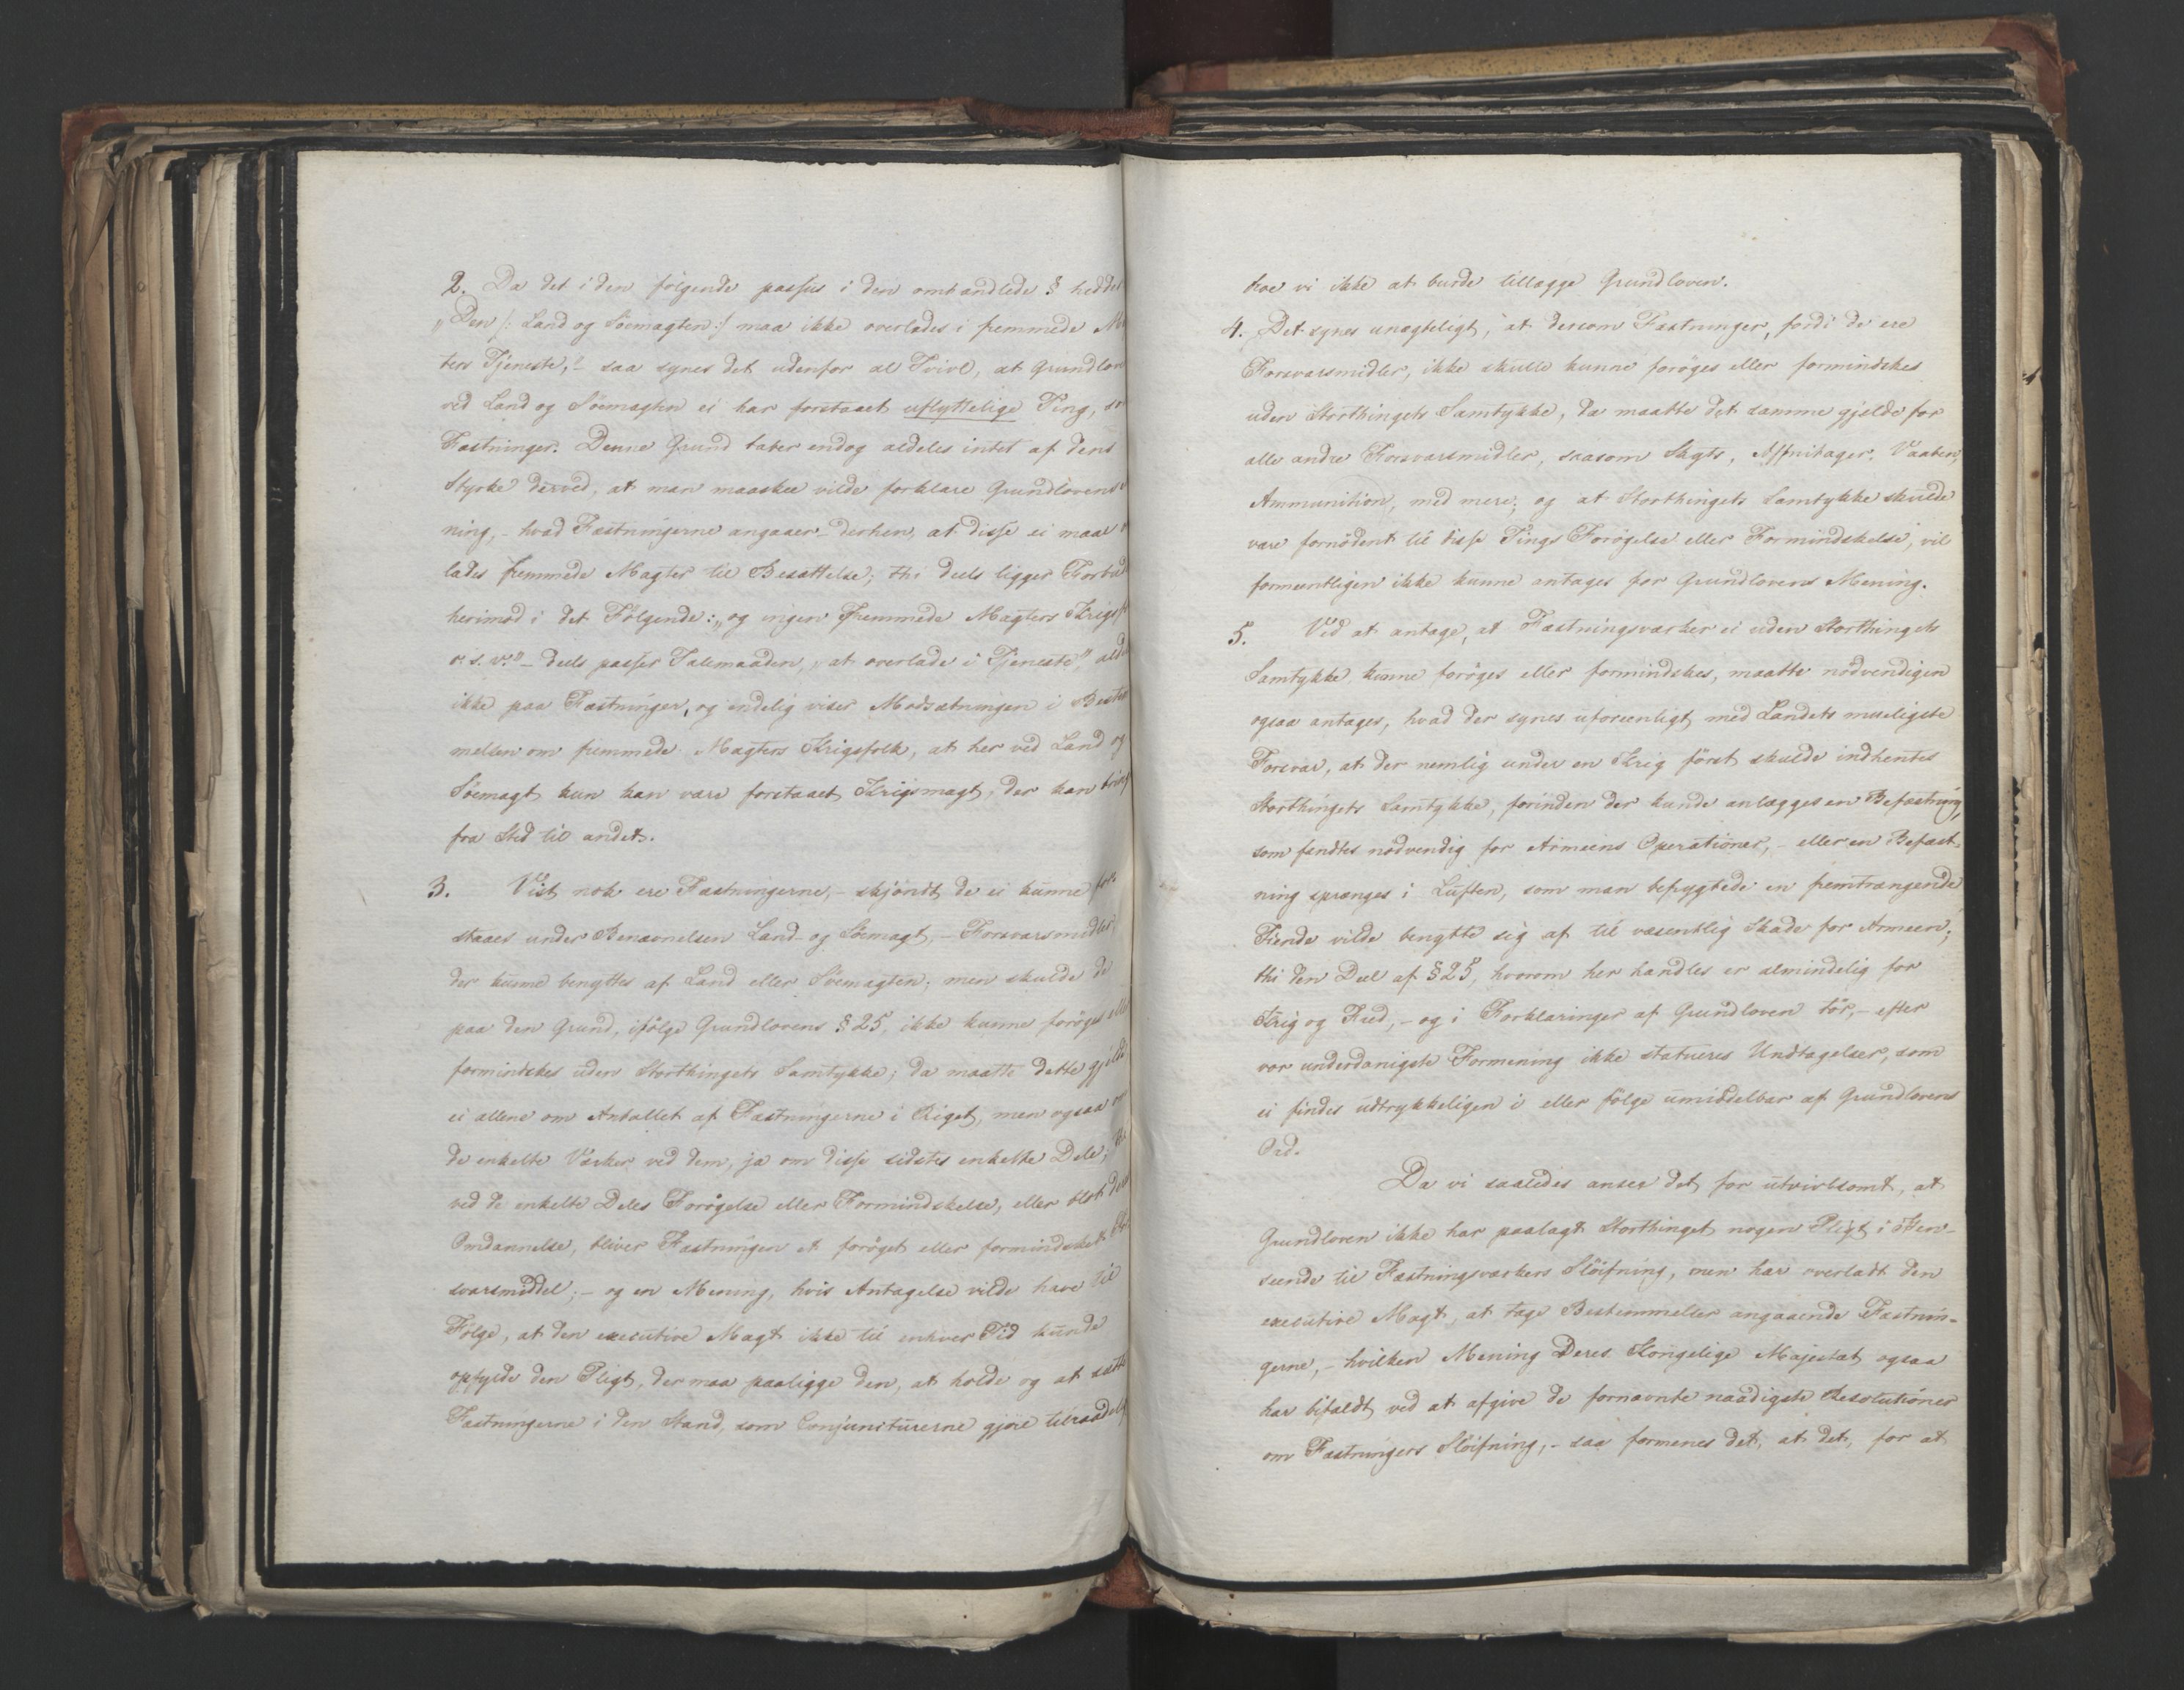 2. Da det i den følgende passus i den omhandlede § hedder
„Den /: Land og Söemagten :/ maa ikke overlades i fremmede
ters Tjeneste," saa synes det udenfor al Tvivl, at Grundlov
ved Land og Söemagten ei har forstaaet uflyttelige Ting, so
Fæstninger. Denne Grund taber endog aldeles intet af dens
Styrke derved, at man maaskee vilde forklare Grundlovens
ning, - hvad Fæstningerne angaaer - derhen, at disse ei maae
lades fremmede Magter til Besættelse; thi deels ligger Forbud
herimod i det Følgende: „og ingen fremmede Magters Krigsf
o. s. v." - deels passer Talemaaden, „at overlade i Tjeneste," alde
ikke paa Fæstninger, og endelig viser Modsætningen i Bestem
melsen om fremmede Magters Krigsfolk, at her ved Land og
Söemagt kun kan være forstaaet Krigsmagt, der kan bring
fra Sted til andet.
3. Vist nok ere Fæstningerne, - skjöndt de ei kunne for-
staaes under Benævnelsen Land- og Söemagt, - Forsvarsmidler,
der kunne benyttes af Land eller Söemagten; men skulde de
paa den Grund, ifølge Grundlovens § 25, ikke kunne foröges eller
formindskes uden Storthingets Samtykke; da maatte dette gjelde
ei allene om Antallet af Fæstningerne i Riget, men ogsaa om
de enkelte Værker ved dem, ja om disse sidstes enkelte Dele; thi
ved de enkelte Deles Forögelse eller Formindskelse, eller blot deres
Omdannelse, bliver Fæstningen et foröget eller formindsket For-
svarsmiddel; - og en Mening, hvis Antagelse vilde have til
Følge, at den executive Magt ikke til enhver Tid kunde
opfylde den Pligt, der maa paaligge den, at holde og at sætte
Fæstningerne i den Stand, som Conjuncturerne gjöre tilraadeli
troe vi ikke at burde tillægge Grundloven.
4. Det synes unægteligt, at dersom Fæstninger, fordi de ere
Forsvarsmidler, ikke skulle kunne foröges eller formindskes
uden Storthingets Samtykke, da maatte det samme gjelde for
alle andre Forsvarsmidler, saasom Skyts, Affuitager, Vaaben,
Ammunition, med mere; og at Storthingets Samtykke skulde
være fornödent til disse Tings Forögelse eller Formindskelse, vil
formeentligen ikke kunne antages for Grundlovens Mening.
5. Ved at antage, at Fæstningsværker ei uden Storthingets
Samtykke kunne foröges eller formindskes, maatte nödvendigen
ogsaa antages, hvad der synes uforeenligt med Landets mueligste
Forsvar, at der nemlig under en Krig först skulde indhentes
Storthingets Samtykke, forinden der kunde anlægges en Befæstning,
som fandtes nödvendig for Armeens Operationer, - eller en Befæst-
ning sprænges i Luften, som man befrygtede en fremtrængende
Fiende vilde benytte sig af til væsentlig Skade for Armeen;
thi den Deel af § 25, hvorom her handles er almindelig for
Krig og Fred, - og i Forklaringer af Grundloven tör, - efter
vor underdanigste Formening ikke statueres Undtagelser, som
ei findes udtrykkeligen i eller fölge umiddelbar af Grundlovens
Ord.
Da vi saaledes ansee det for utvivlsomt, at
Grundloven ikke har paalagt Storthinget nogen Pligt i Hen-
seende til Fæstningsværkers Slöifning, men har overladt den
executive Magt, at tage Bestemmelser angaaende Fæstnin-
gerne, - hvilken Mening Deres Kongelige Majestæt ogsaa
har bifaldt ved at afgive de fornævnte naadigste Resolutioner
om Fæstningers Slöifning, - saa formenes det, at det, for at